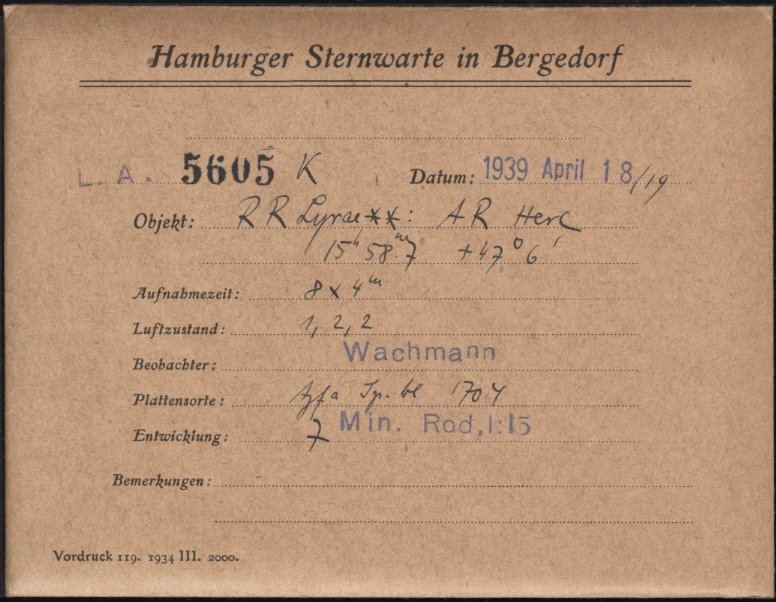 Hamburger Sternwarte in Bergedorf
L. A. 5605 K Datum: 1939 April 18/19
Objekt: RR Lyrae **: AR Herc
15ʰ 58ᵐ.7 +47° 6'
Aufnahmezeit: 8 x 4ᵐ
Luftzustand: 1, 2, 2
Beobachter: Wachmann
Plattensorte: Agfa Sp. bl 1704
Entwicklung: 7 Min. Rod, 1:15
Bemerkungen:
Vordruck 119. 1934 III. 2000.